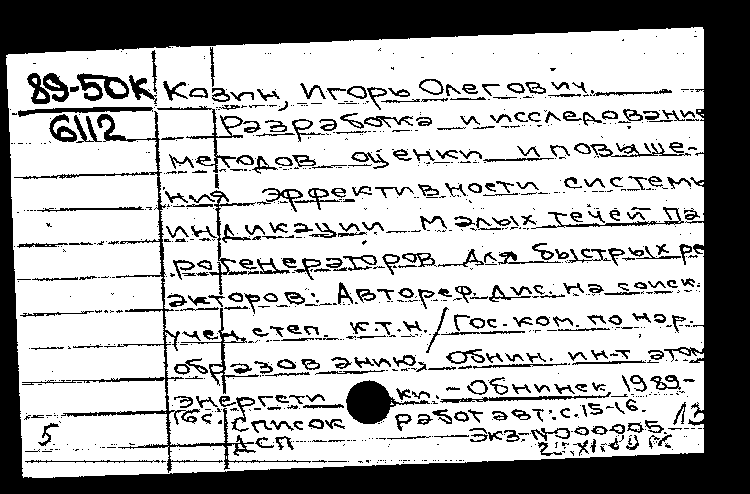 89-50К
6112
Козин, Игорь Олегович.
Разработка и исследование
методов оценки и повыше-
ния эффективности системы
индикации малых течей па-
рогенераторов для быстрых ре
акторов: Автореф. дис. на соиск.
учен. степ. к.т.н. / Гос. ком. по нар.
образованию, Обнин. ин-т атом
энергети ки. – Обнинск, 1989-
16 с. Список работ авт.: с. 15-16.
ДСП Экз. N 000005.
5
13